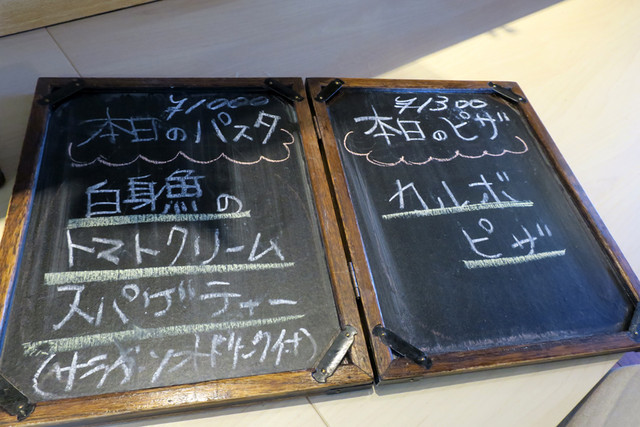 ¥1000
本日のパスタ
白身魚の
トマトクリーム
スパゲティー
(サラダ・ソフトドリンク付)
¥1300
本日のピザ
カルボ
ピザ